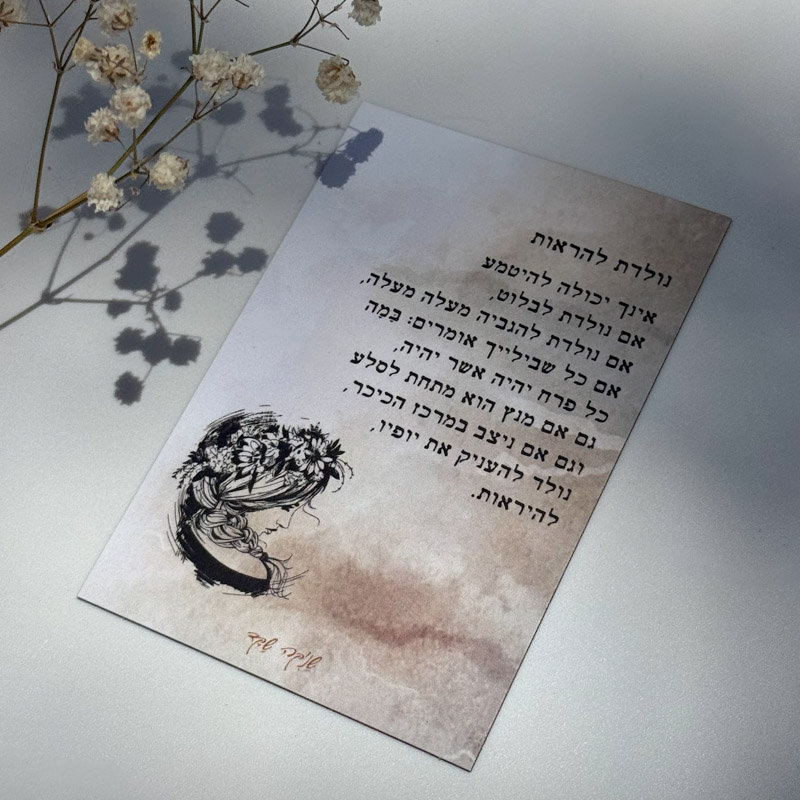 נולדת להראות
אינך יכולה להיטמע
אם נולדת לבלוט,
אם נולדת להגביה מעלה מעלה,
אם כל שבילייך אומרים: בָּמָה
כל פרח יהיה אשר יהיה,
גם אם מנץ הוא מתחת לסלע
וגם אם ניצב במרכז הכיכר,
נולד להעניק את יופיו,
להיראות.